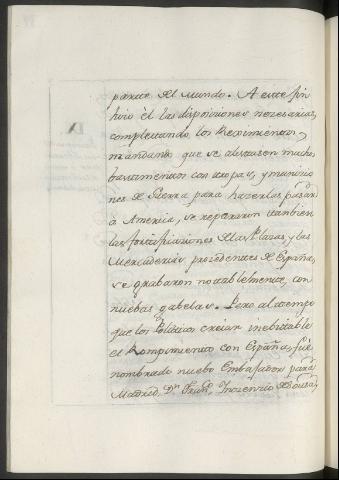 parte del Mundo. A este fin
hizo él las disposiciones necesarias,
completando los Reximientos,
mandando que se alistasen muchos
bastimentos con tropas, y municio
nes de Guerra para hacerlas pasar
á America, se repararon tambien
las fortificaciones de las Plazas, y las
Mercaderias procedentes de España,
se grabaron notablemente, con
nuebas gabelas. Pero al tiempo
que los Politicos creian inebitable
el Rompimiento con España, fué
nombrado nuebo Embaxador para
Madrid, Dn. Inocencio de Sousa,